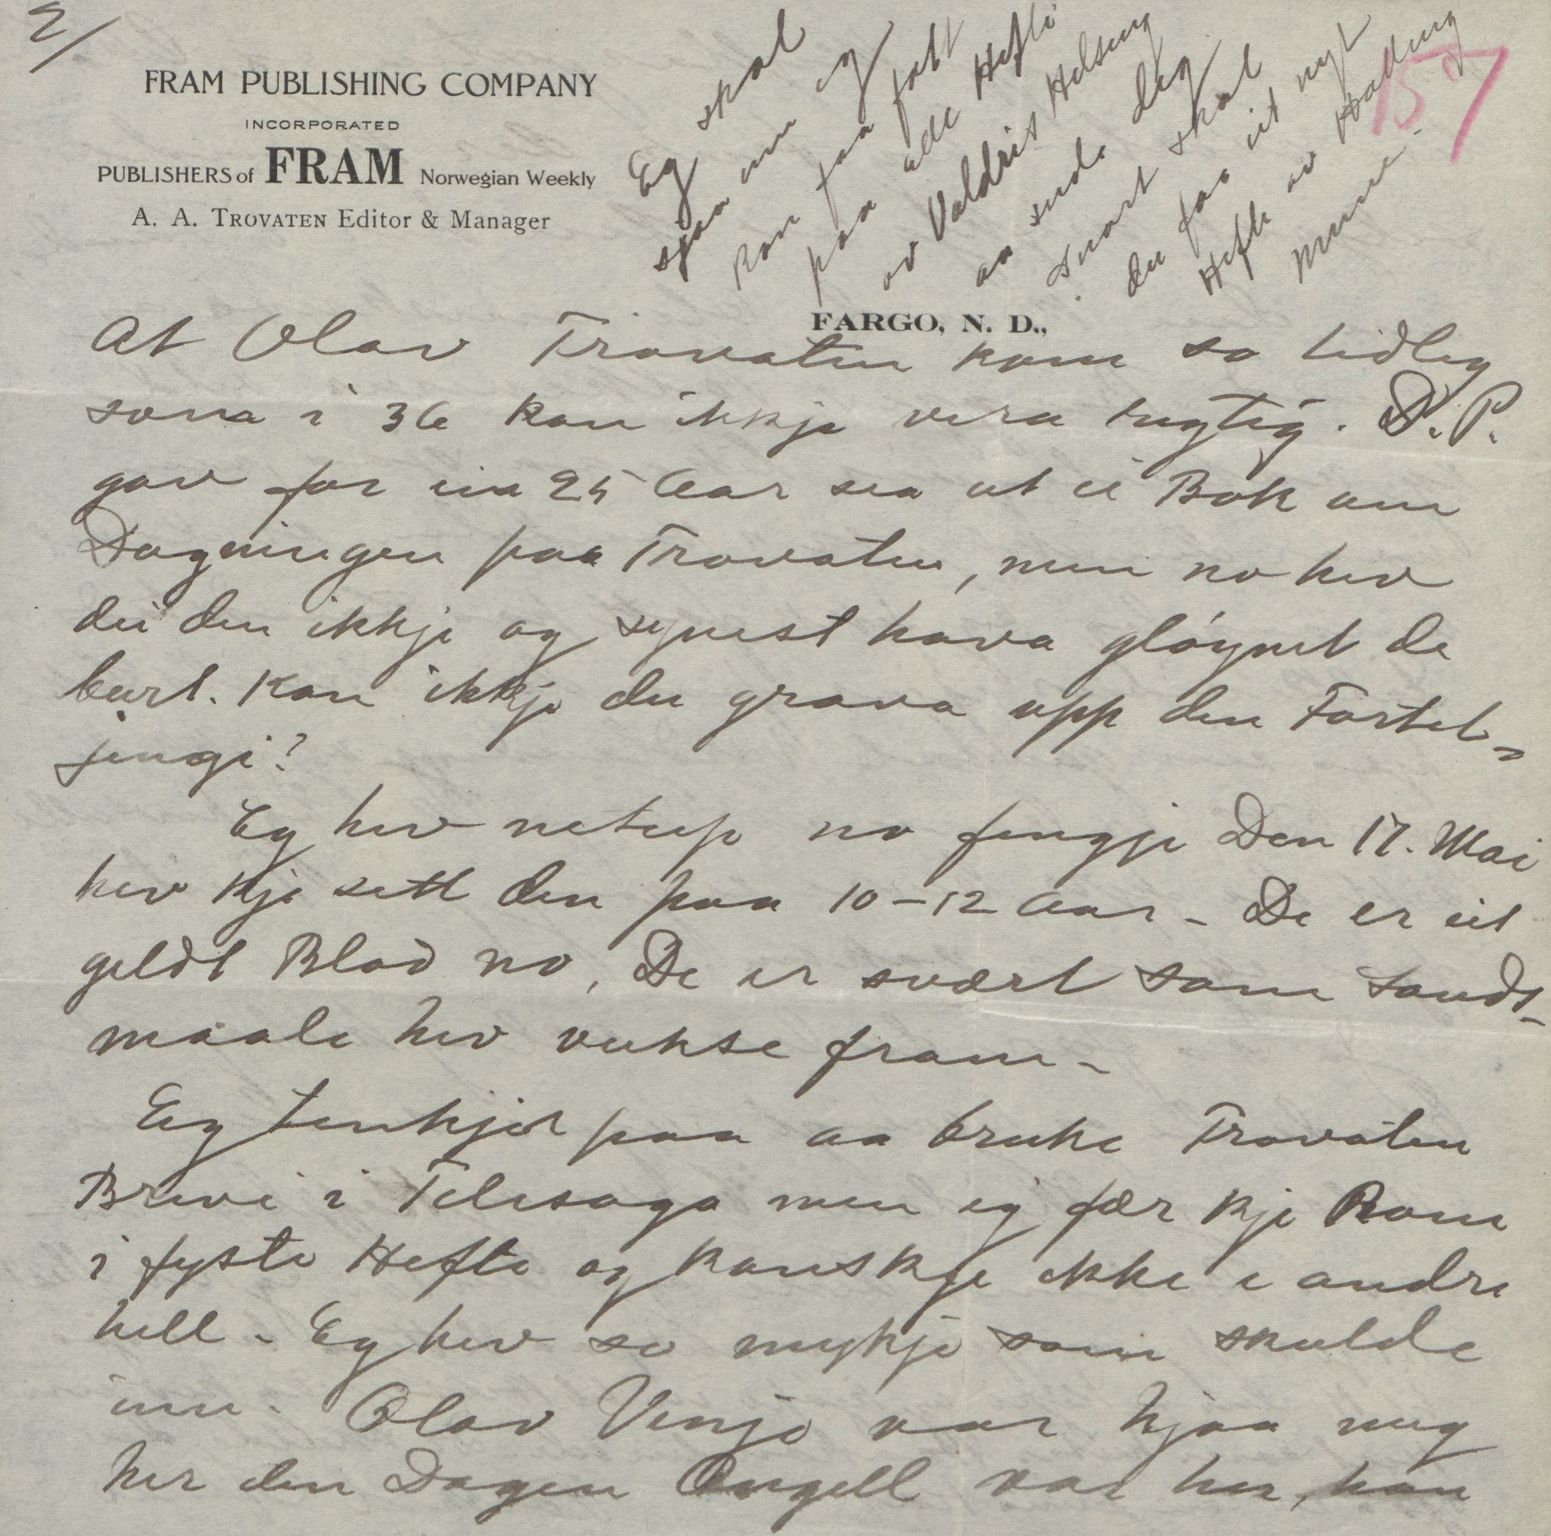 2/
157
FRAM PUBLISHING COMPANY
INCORPORATED
PUBLISHERS of FRAM Norwegian Weekly
A. A. TROVATEN Editor & Manager
FARGO, N. D.,
Eg skal
sjaa um eg
kan faa fatt
paa alle Hefti
av Valdris Helsing
aa senda deg
snart skal
du faa eit nyt
Hefte av Hadding
Minne -
At Olav Trovaten kom so tidleg
som i 36 kan ikkje vera rugtig. D. P.
gav for ein 25 Aar sea ut ei Bok um
Dagningen paa Trovaten, men no hev
dei den ikkje og synest hava gløymt de
burt. Kan ikkje du grava upp den Fortel-
jingi?
Eg hev netup no fengje Den 17. Mai
hev kje sett den paa 10-12 Aar - De er eit
gildt Blad no, De er svært som Lands-
maale hev vukse fram -
Eg tenkjer paa aa bruke Trovaten
Brevi i Telesoga men eg fær kje Rom
i fyste Hefte og kanskje ikke i andre
hell - Eg hev so mykje som skulde
inn - Olav Vinje var hjaa meg
her den Dagen Angell var her, han